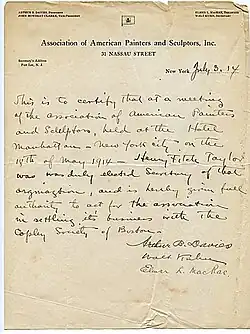 ARTHUR B. DAVIES, President
JOHN MOWBRAY-CLARKE, Vice-President
ELMER L. MACRAE, Treasurer
WALT KUHN, Secretary
Association of American Painters and Sculptors, Inc.
31 NASSAU STREET
Secretary's Address
Fort Lee, N. J.
New York July 3. 14
This is to certify that at a
meeting of the association of American Painters
and Sculptors, held at the Hotel
Manhattan – New York City – on the
19th of May 1914 – Henry Fitch Taylor
was was duly elected Secretary of that
orgnization, and is hereby given full
authority to act for the association
in settling its business with The
Copley Society of Boston –
Arthur B. Davies
Walt Kuhn
Elmer L. MacRae